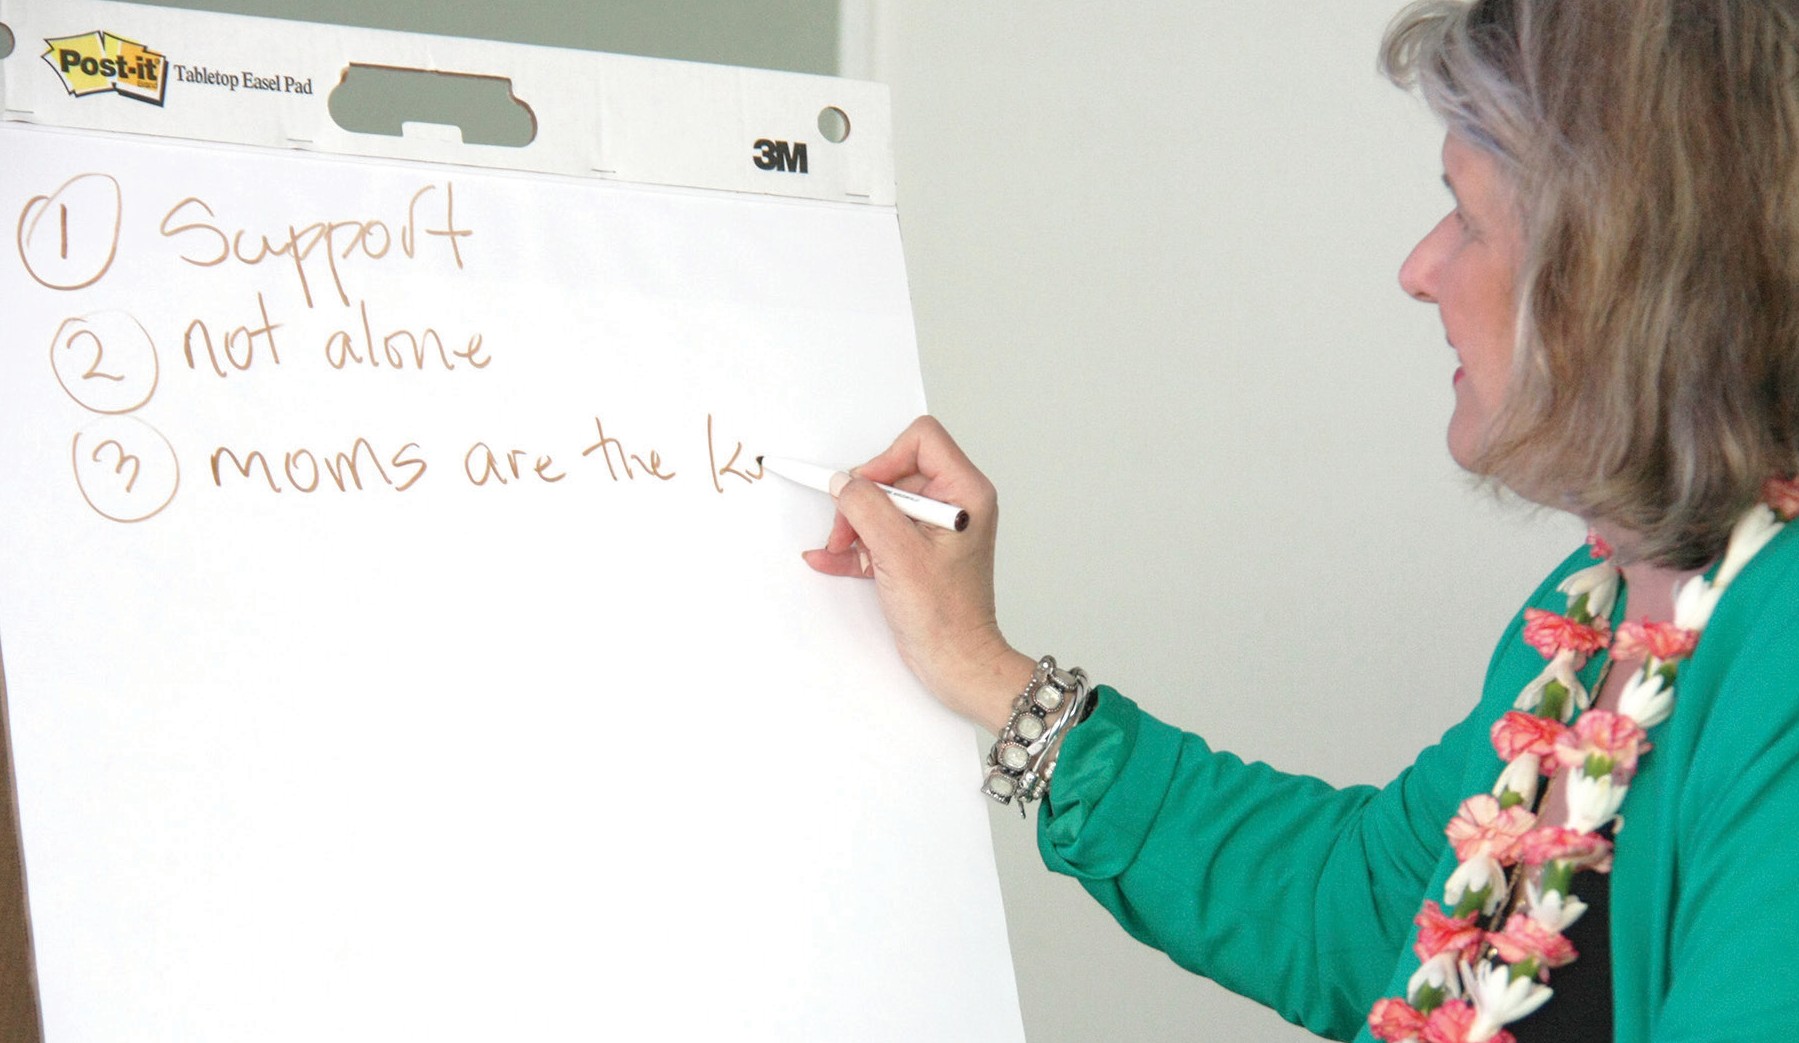 Post-it Tabletop Easel Pad
3M
1 Support
2 not alone
3 moms are the